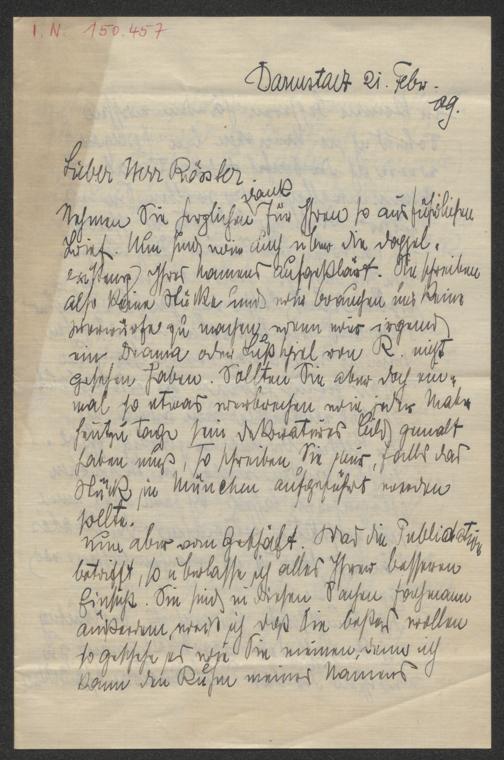 I. N. 150.457
Darmstadt 21. Febr.
09.
Lieber Herr Rössler.
Nehmen Sie herzlichen Dank für Ihren so ausführlichen
Brief. Nun sind wir auch über die doppel-
existenz Ihres Namens aufgeklärt. Sie schreiben
also keine Stücke und wir brauchen uns keine
vorwürfe zu machen, wenn wir irgend
ein Drama oder Lustspiel von R. nicht
gesehen haben. Sollten Sie aber doch ein-
mal so etwas verbrechen wie jeder Maler
heutzutage sein dekoratives Bild gemalt
haben muß, so schreiben Sie , falls das
Stück in München aufgeführt werden
sollte.
Nun aber vom Geschäft. Was die Publikation
betrifft, so überlasse ich alles Ihrer besseren
Einsicht. Sie sind in diesen Sachen Fachmann
äußerdem, weiß ich daß Sie bestes wollen
so geschehe es wie Sie meinen, denn ich
kann den Ruhm meines Namens